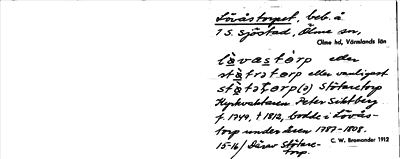 Lövåstorpet, beb. å
1 S. Sjöstad, Ölme sn,
Ölme hd, Värmlands län
lòvastòrp eller
eller vanligast
Stötaretorp
Kyrkvaktaren Peter Siktberg
f. 1749, † 1812, bodde i Lövås-
torp under åren 1787-1808.
15-16/ Därav Stötare-
torp.
C. W. Bromander 1912